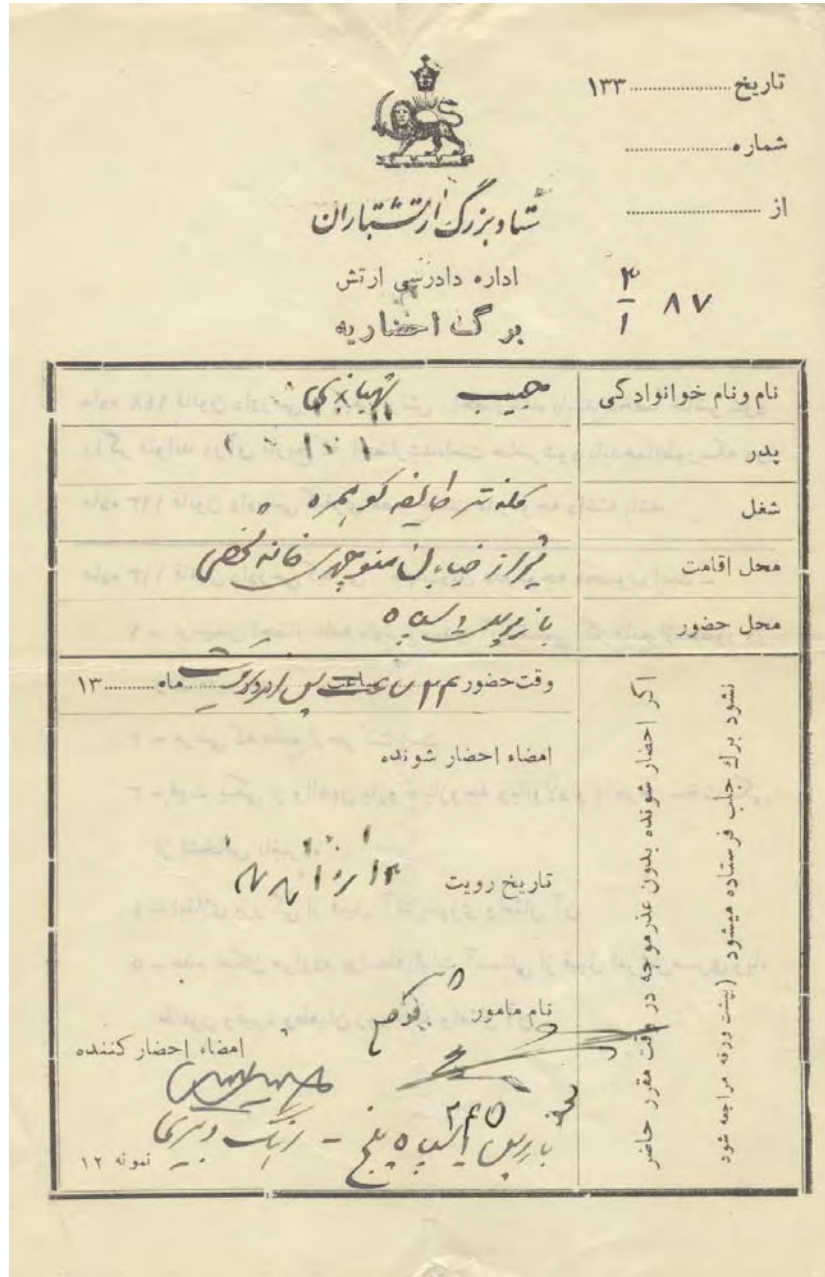 تاریخ .................... ۱۳۳
شماره ....................
از ....................
ستاد بزرگ ارتشتاران
اداره دادرسی ارتش
۴/۱ ۸۷
برگ احضاریه
نام و نام خوانوادگی حبیب شهبازی
پدر
شغل کلانتر طایفه کوهمره
محل اقامت شیراز خیابان منوچهری خانه شخصی
محل حضور بازپرسی سپاه
وقت حضور ۲۴ ساعت پس از رویت ماه .......... ۱۳
امضاء احضار شونده
تاریخ رویت
نام مامور
امضاء احضار کننده
بازپرس سپاه پنج -
نمونه ۱۲
اگر احضار شونده بدون عذر موجه در وقت مقرر حاضر
نشود برك جلب فرستاده میشود (بپشت ورقه مراجعه شود